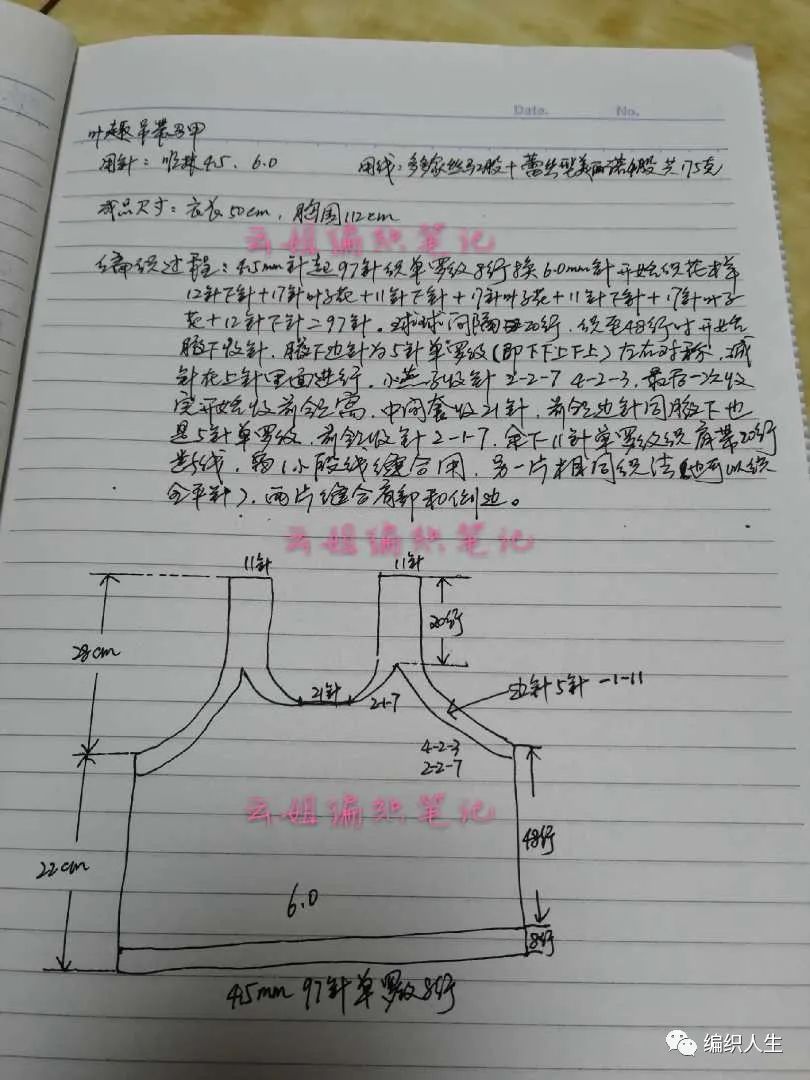 Date. No.
叶趣吊带马甲
用针：唯林4.5、6.0 用线：多多家丝马2股+蕾丝型美丽诺4股共175克
成品尺寸：衣长50cm，胸围112cm
云姐编织笔记
编织过程：4.5mm针起97针织单罗纹8行换6.0mm针开始织花样
12针下针+17针叶子花+11针下针+17针叶子花+11针下针+17针叶子
花+12针下针=97针。球球间隔20行，织至48行时开始
腋下收针，腋下边针为5针单罗纹(即下下上下上)左右对称，减
针在上针里面进行。小燕子收针2-2-7 4-2-3，最后一次收
完开始收前领窝，中间套收21针，前领边针同腋下也
是5针单罗纹，前领收针2-1-7，余下11针单罗纹织肩带20行
断线，留1小段线缝合用，另一片相同织法(也可以织
全平针)，两片缝合肩部和侧边。
云姐编织笔记
11针 11针
28cm 20行
21针 2-1-7 边针5针 -1-11
4-2-3
2-2-7
云姐编织笔记
22cm 48行
6.0
8行
4.5mm 97针单罗纹8行
编织人生